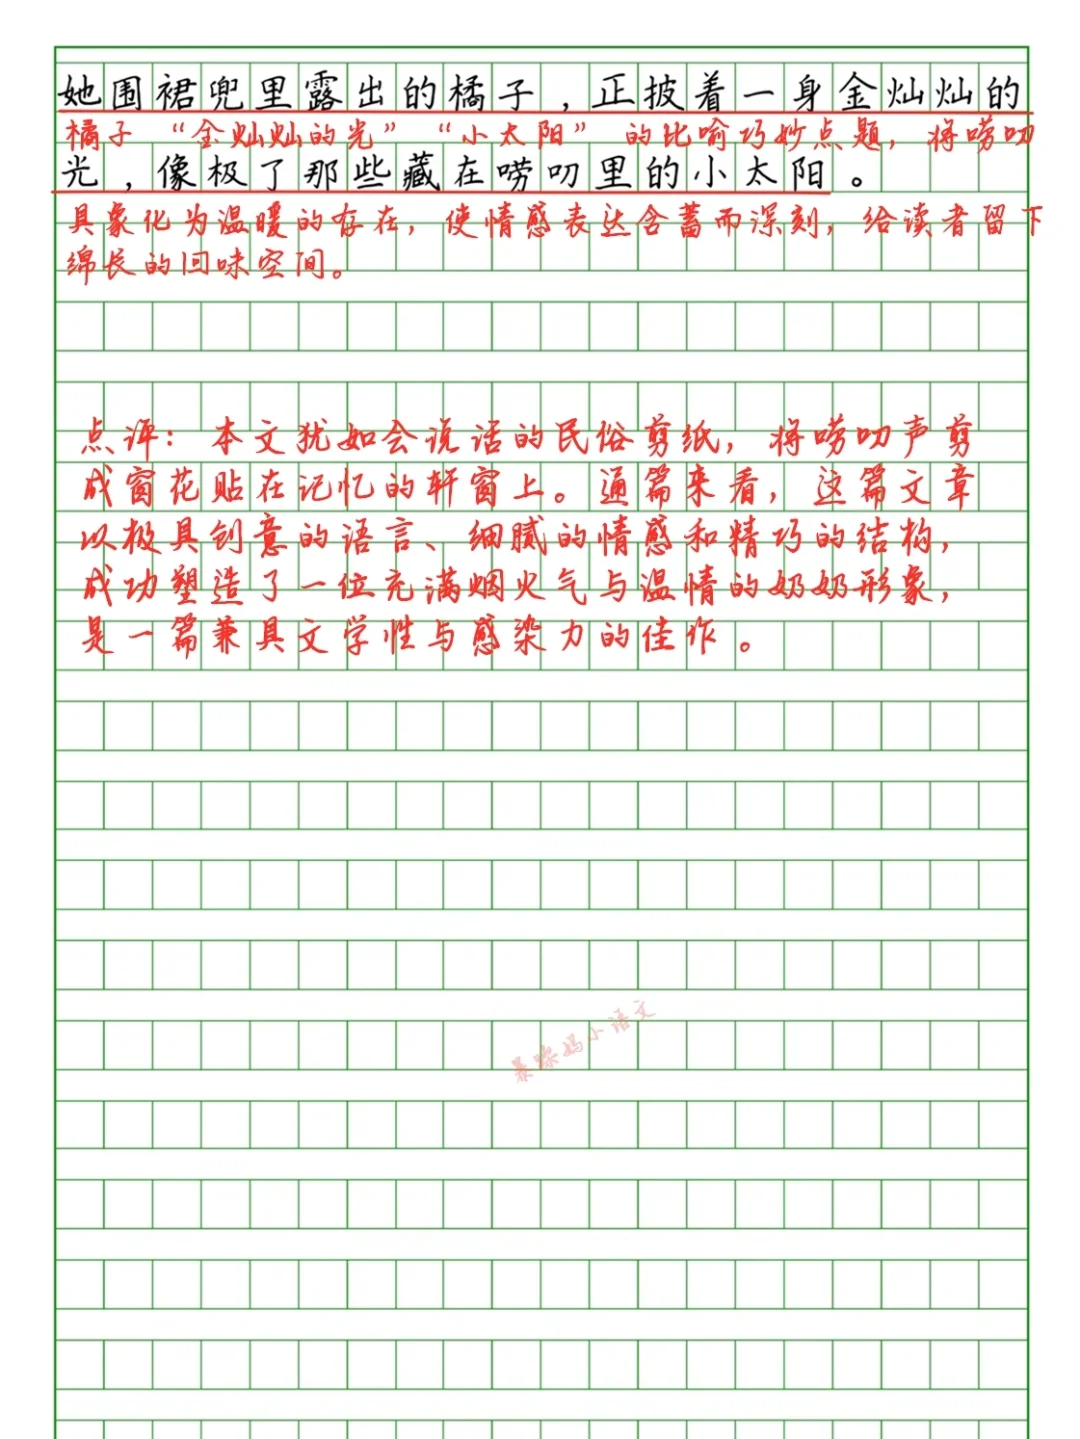 她围裙兜里露出的橘子，正披着一身金灿灿的
橘子“金灿灿的光”“小太阳”的比喻巧妙点题，将唠叨
光，像极了那些藏在唠叨里的小太阳。
具象化为温暖的存在，使情感表达含蓄而深刻，给读者留下
绵长的回味空间。
点评：本文犹如会说话的民俗剪纸，将唠叨声剪
成窗花贴在记忆的轩窗上。通篇来看，这篇文章
以极具创意的语言、细腻的情感和精巧的结构，
成功塑造了一位充满烟火气与温情的奶奶形象，
是一篇兼具文学性与感染力的佳作。
暴躁妈小语文